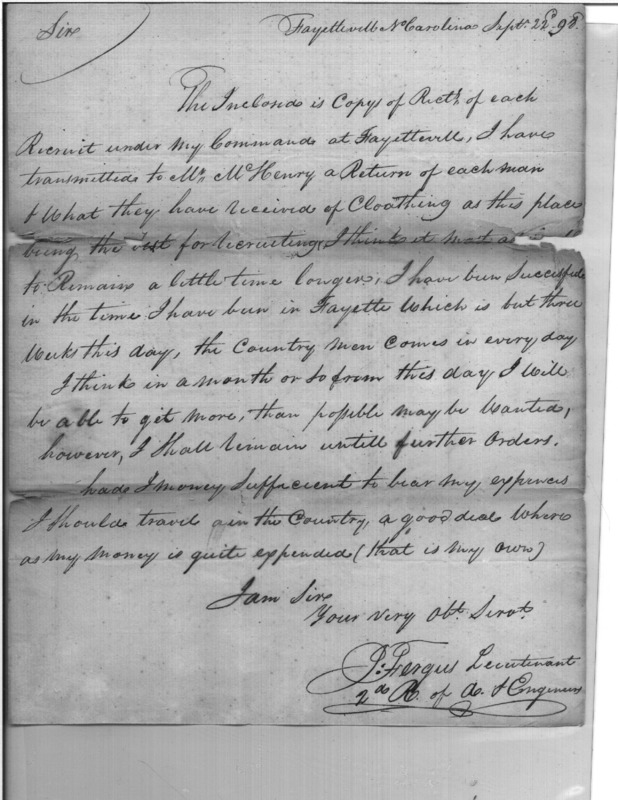 Sir Fayettevill No Carolina Septr. 22d 98.
The Inclosed is Copys of Rects. of each
Recruit under my Command at Fayettevill, I have
transmitted to Mr. McHenry a Return of each man
& What they have received of Cloathing as this place
being the best for recruiting, I think it most
to Remain a little time longer, I have been Successfull
in the time I have been in Fayette Which is but three
Weeks this day, the Country men Comes in every day
I think in a month or so from this day I will
be able to get more, than possible may be Wanted,
however, I Shall remain untill further Orders.
had I money Sufficient to bear my expences
I Should travel in the Country, a good deal Where
as my money is quite expended (that is my own)
I am Sir
Your Very Obt. Servt.
J: Fergus Leiutenant
2nd R. of A. & Engineers